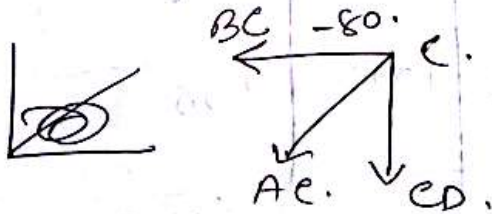 BC -80.
C.
AC.
CD.